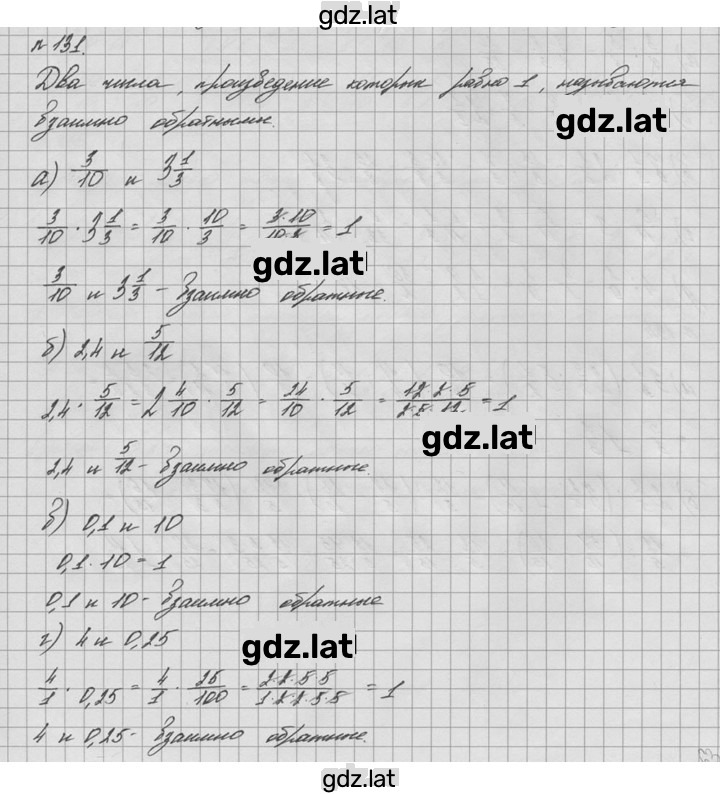 gdz.lat
№ 131.
Два числа, произведение которых равно 1, называются
gdz.lat
взаимно обратными.
а) 3/10 и 3 1/3
3/10 · 3 1/3 = 3/10 · 10/3 = 3·10/10·3 = 1
gdz.lat
3/10 и 3 1/3 - взаимно обратные.
б) 2,4 и 5/12
2,4 · 5/12 = 2 4/10 · 5/12 = 24/10 · 5/12 = 12·2·5/2·5·12 = 1
gdz.lat
2,4 и 5/12 - взаимно обратные.
в) 0,1 и 10
0,1 · 10 = 1
0,1 и 10 - взаимно обратные
г) 4 и 0,25
gdz.lat
4/1 · 0,25 = 4/1 · 25/100 = 2·2·5·5/1·2·2·5·5 = 1
4 и 0,25 - взаимно обратные.
gdz.lat